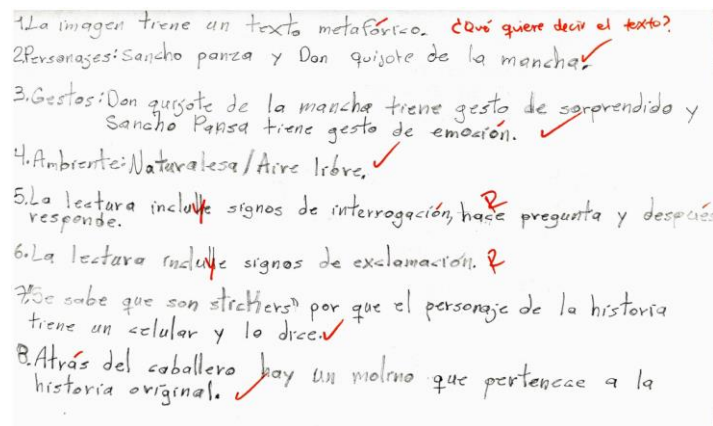 1.La imagen tiene un texto metafórico. ¿Qué quiere decir el texto?
2.Personajes: Sancho panza y Don quijote de la mancha.
3.Gestos: Don quijote de la mancha tiene gesto de sorprendido y
Sancho Pansa tiene gesto de emoción.
4.Ambiente: Naturalesa/Aire libre.
5.La lectura incluye signos de interrogación, hace pregunta y después R
responde.
6.La lectura incluye signos de exclamación. R
7."Se sabe que son stickers" por que el personaje de la historia
tiene un celular y lo dice.
8.Atrás del caballero hay un molino que pertenece a la
historia original.